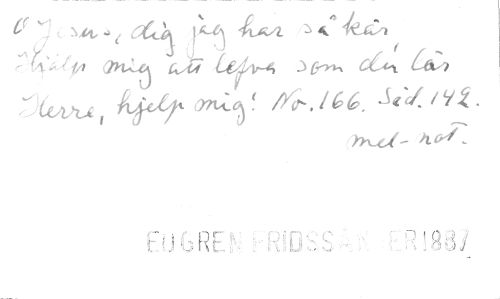 "Jesus, dig jag har så kär
Hjälp mig att lefva som du lär
Herre, hjelp mig! No. 166. Sid. 142.
mel-not.
EUGREN FRIDSSÅNGER 1887